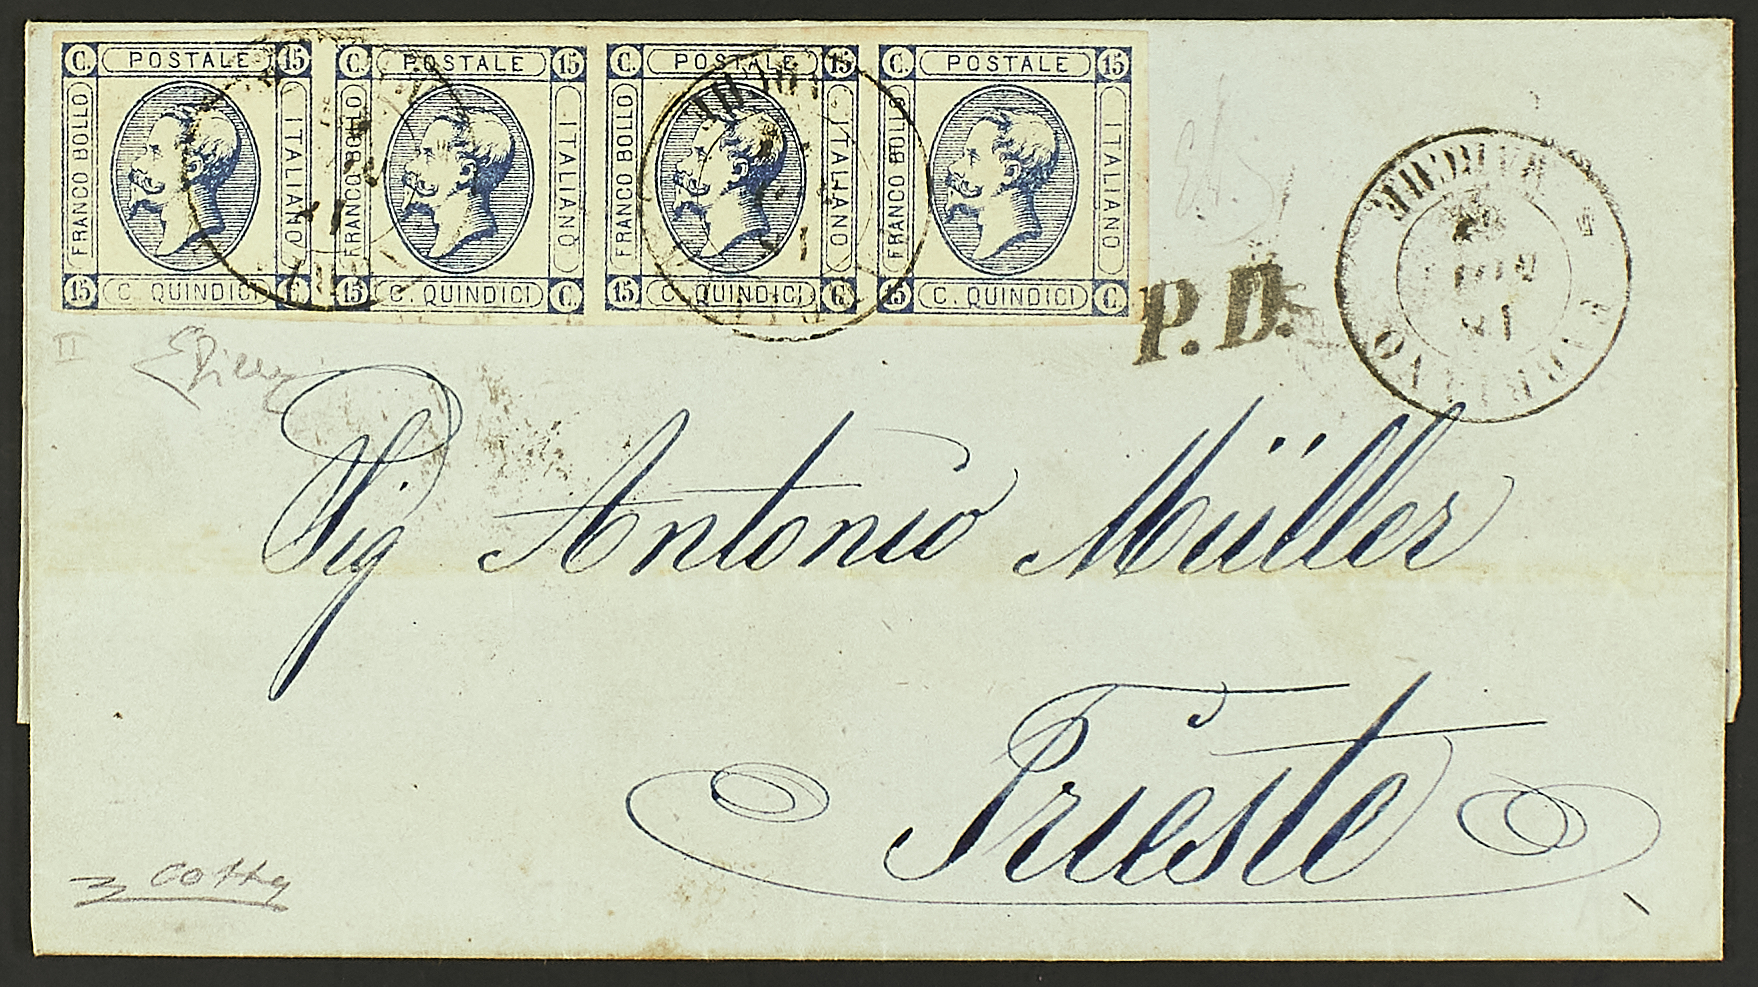 C. POSTALE 15 C. POSTALE 15 C. POSTALE 15 C. POSTALE 15
FRANCO BOLLO ITALIANO FRANCO BOLLO ITALIANO FRANCO BOLLO ITALIANO FRANCO BOLLO ITALIANO
15 C. QUINDICI C. 15 C. QUINDICI C. 15 C. QUINDICI C. 15 C. QUINDICI C.
P.D.
II
Sig Antonio Müller
Trieste